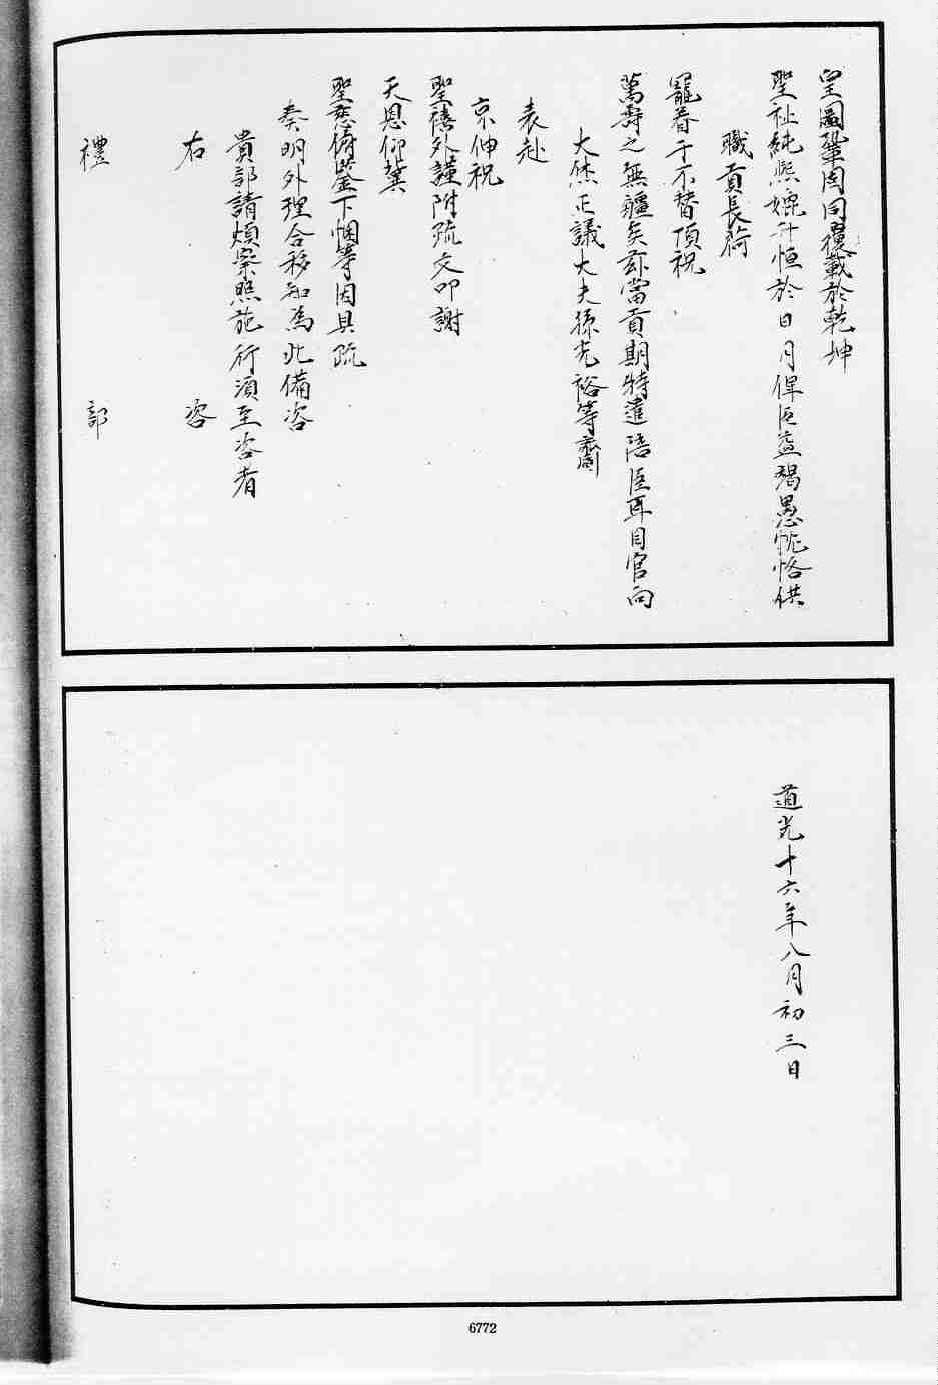 皇圖鞏固同覆載於乾坤
聖祉純熙媲升恒於日月俾臣益竭愚忱恪供
職貢長荷
寵眷于不替頂祝
萬壽之無疆矣玆當貢期特遣陪臣耳目官向
大烋正議大夫孫光裕等齎
表赴
京伸祝
聖禧外謹附疏文叩謝
天恩仰冀
聖慈俯鑒下悃等因具疏
奏明外理合移知為此備咨
貴部請煩察照施行須至咨者
右 咨
禮 部
道光十六年八月初三日
6772